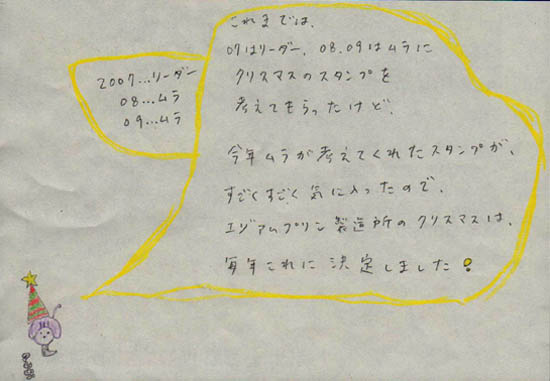 これまでは、
07はリーダー、08.09はムラに
クリスマスのスタンプを
考えてもらったけど、
今年ムラが考えてくれたスタンプが、
すごくすごく気に入ったので、
エヅアムプリン製造所のクリスマスは、
毎年これに決定しました!
2007...リーダー
08...ムラ
09...ムラ